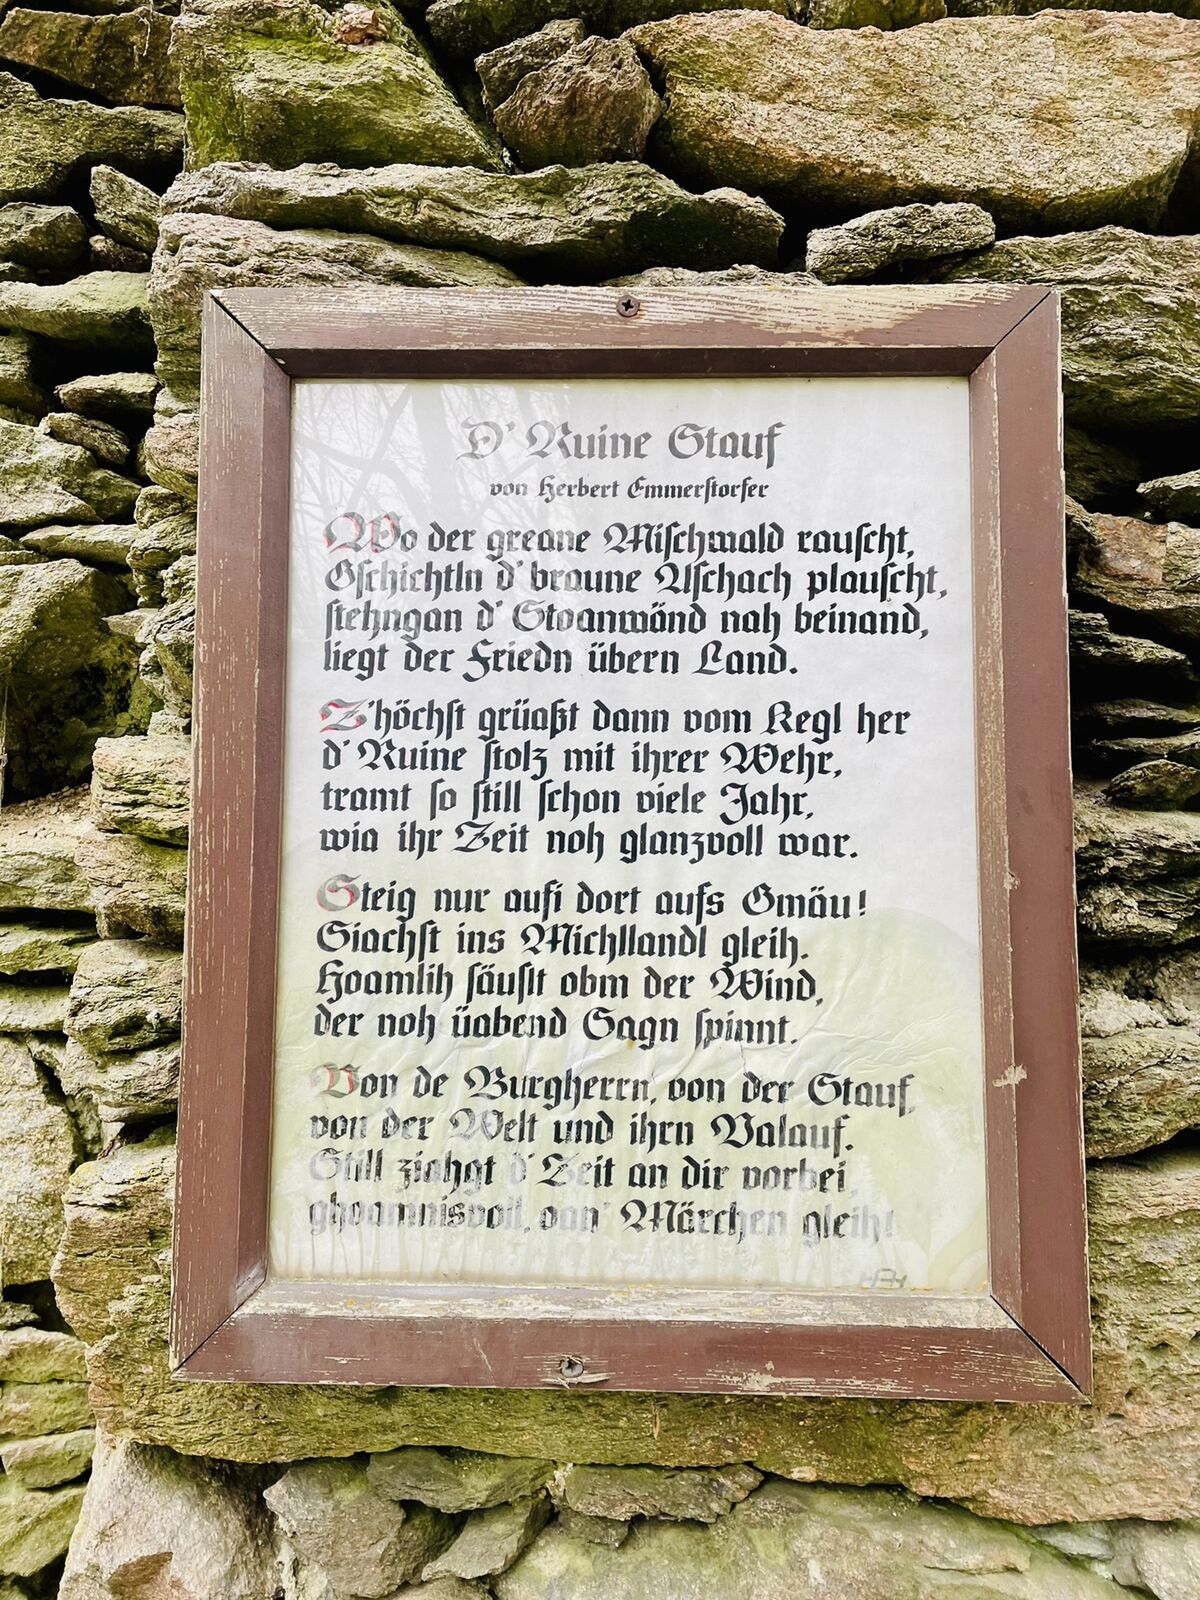 D' Ruine Stauf
von Herbert Emmerstorfer
Wo der greane Mischwald rauscht,
Gschichtln d' braune Aschach plauscht,
stehngan d' Stoanwänd nah beinand,
liegt der Friedn übern Land.
Z'höchst grüaßt dann vom Kegl her
d' Ruine stolz mit ihrer Wehr,
tramt so still schon viele Jahr,
wia ihr Zeit noh glanzvoll war.
Steig nur aufi dort aufs Gmäu!
Siachst ins Michllandl gleih.
Hoamlih säuslt obm der Wind,
der noh üabend Sagn spinnt.
Von de Burgherrn, von der Stauf,
von der Welt und ihrn Valauf.
Still ziahgt d' Zeit an dir vorbei,
ghoamnisvoll, oan' Märchen gleih!